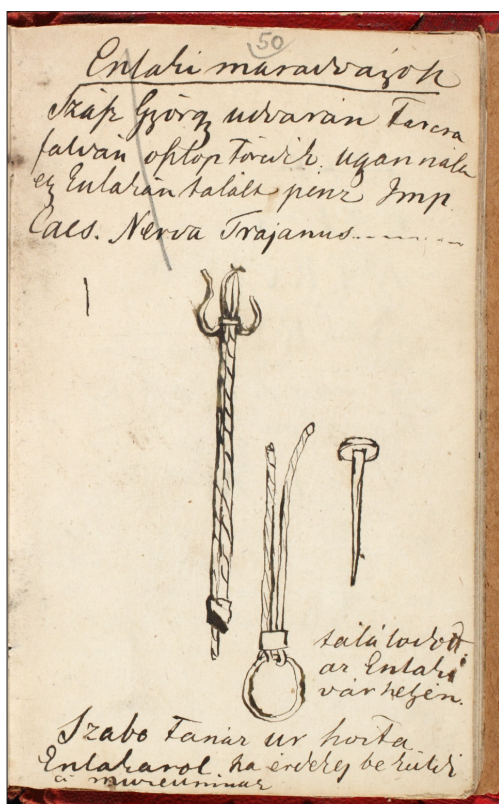 50
Enlaki maradványok
György udvarán Tarcsa
falván oszlop töredék. ugan nála
egy Enlakán talált penz Imp.
Caes. Nerva Trajanus
találtatott
az Enlaki
vár helyén.
Szabo Tanár ur hozta
Enlakarol ha érdekes be küldi
a muzeumnak